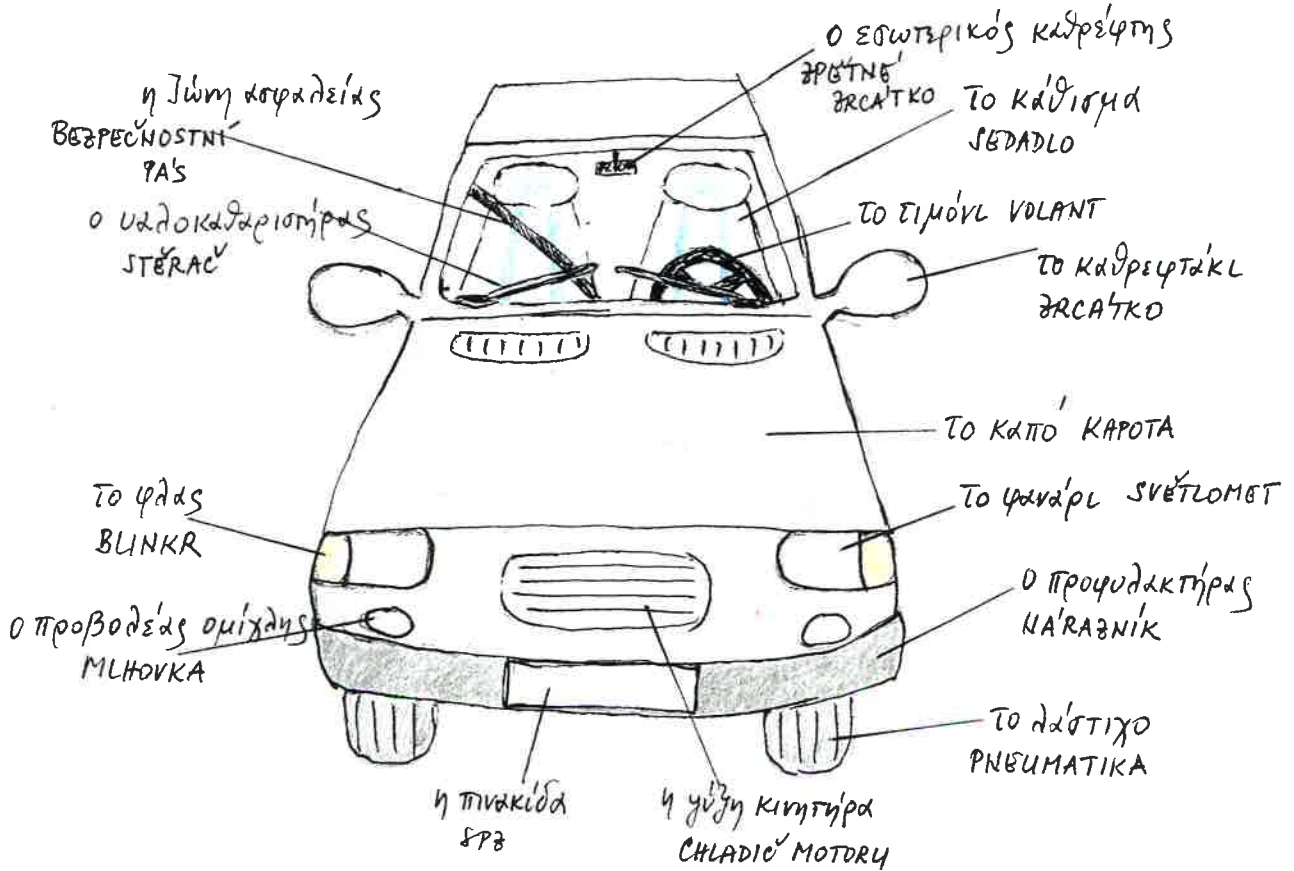 ο εσωτερικός καθρέφτης
ZPĚTNÉ
ZRCÁTKO
η ζώνη ασφαλείας
BEZPEČNOSTNÍ
PÁS
το κάθισμα
SEDADLO
ο υαλοκαθαριστήρας
STĚRAČ
το τιμόνι VOLANT
το καθρεφτάκι
ZRCÁTKO
το καπό KAPOTA
το φλας
BLINKR
το φανάρι SVĚTLOMET
ο προβολέας ομίχλης
MLHOVKA
ο προφυλακτήρας
NÁRAZNÍK
το λάστιχο
PNEUMATIKA
η πινακίδα
SPZ
η ψύξη κινητήρα
CHLADIČ MOTORU